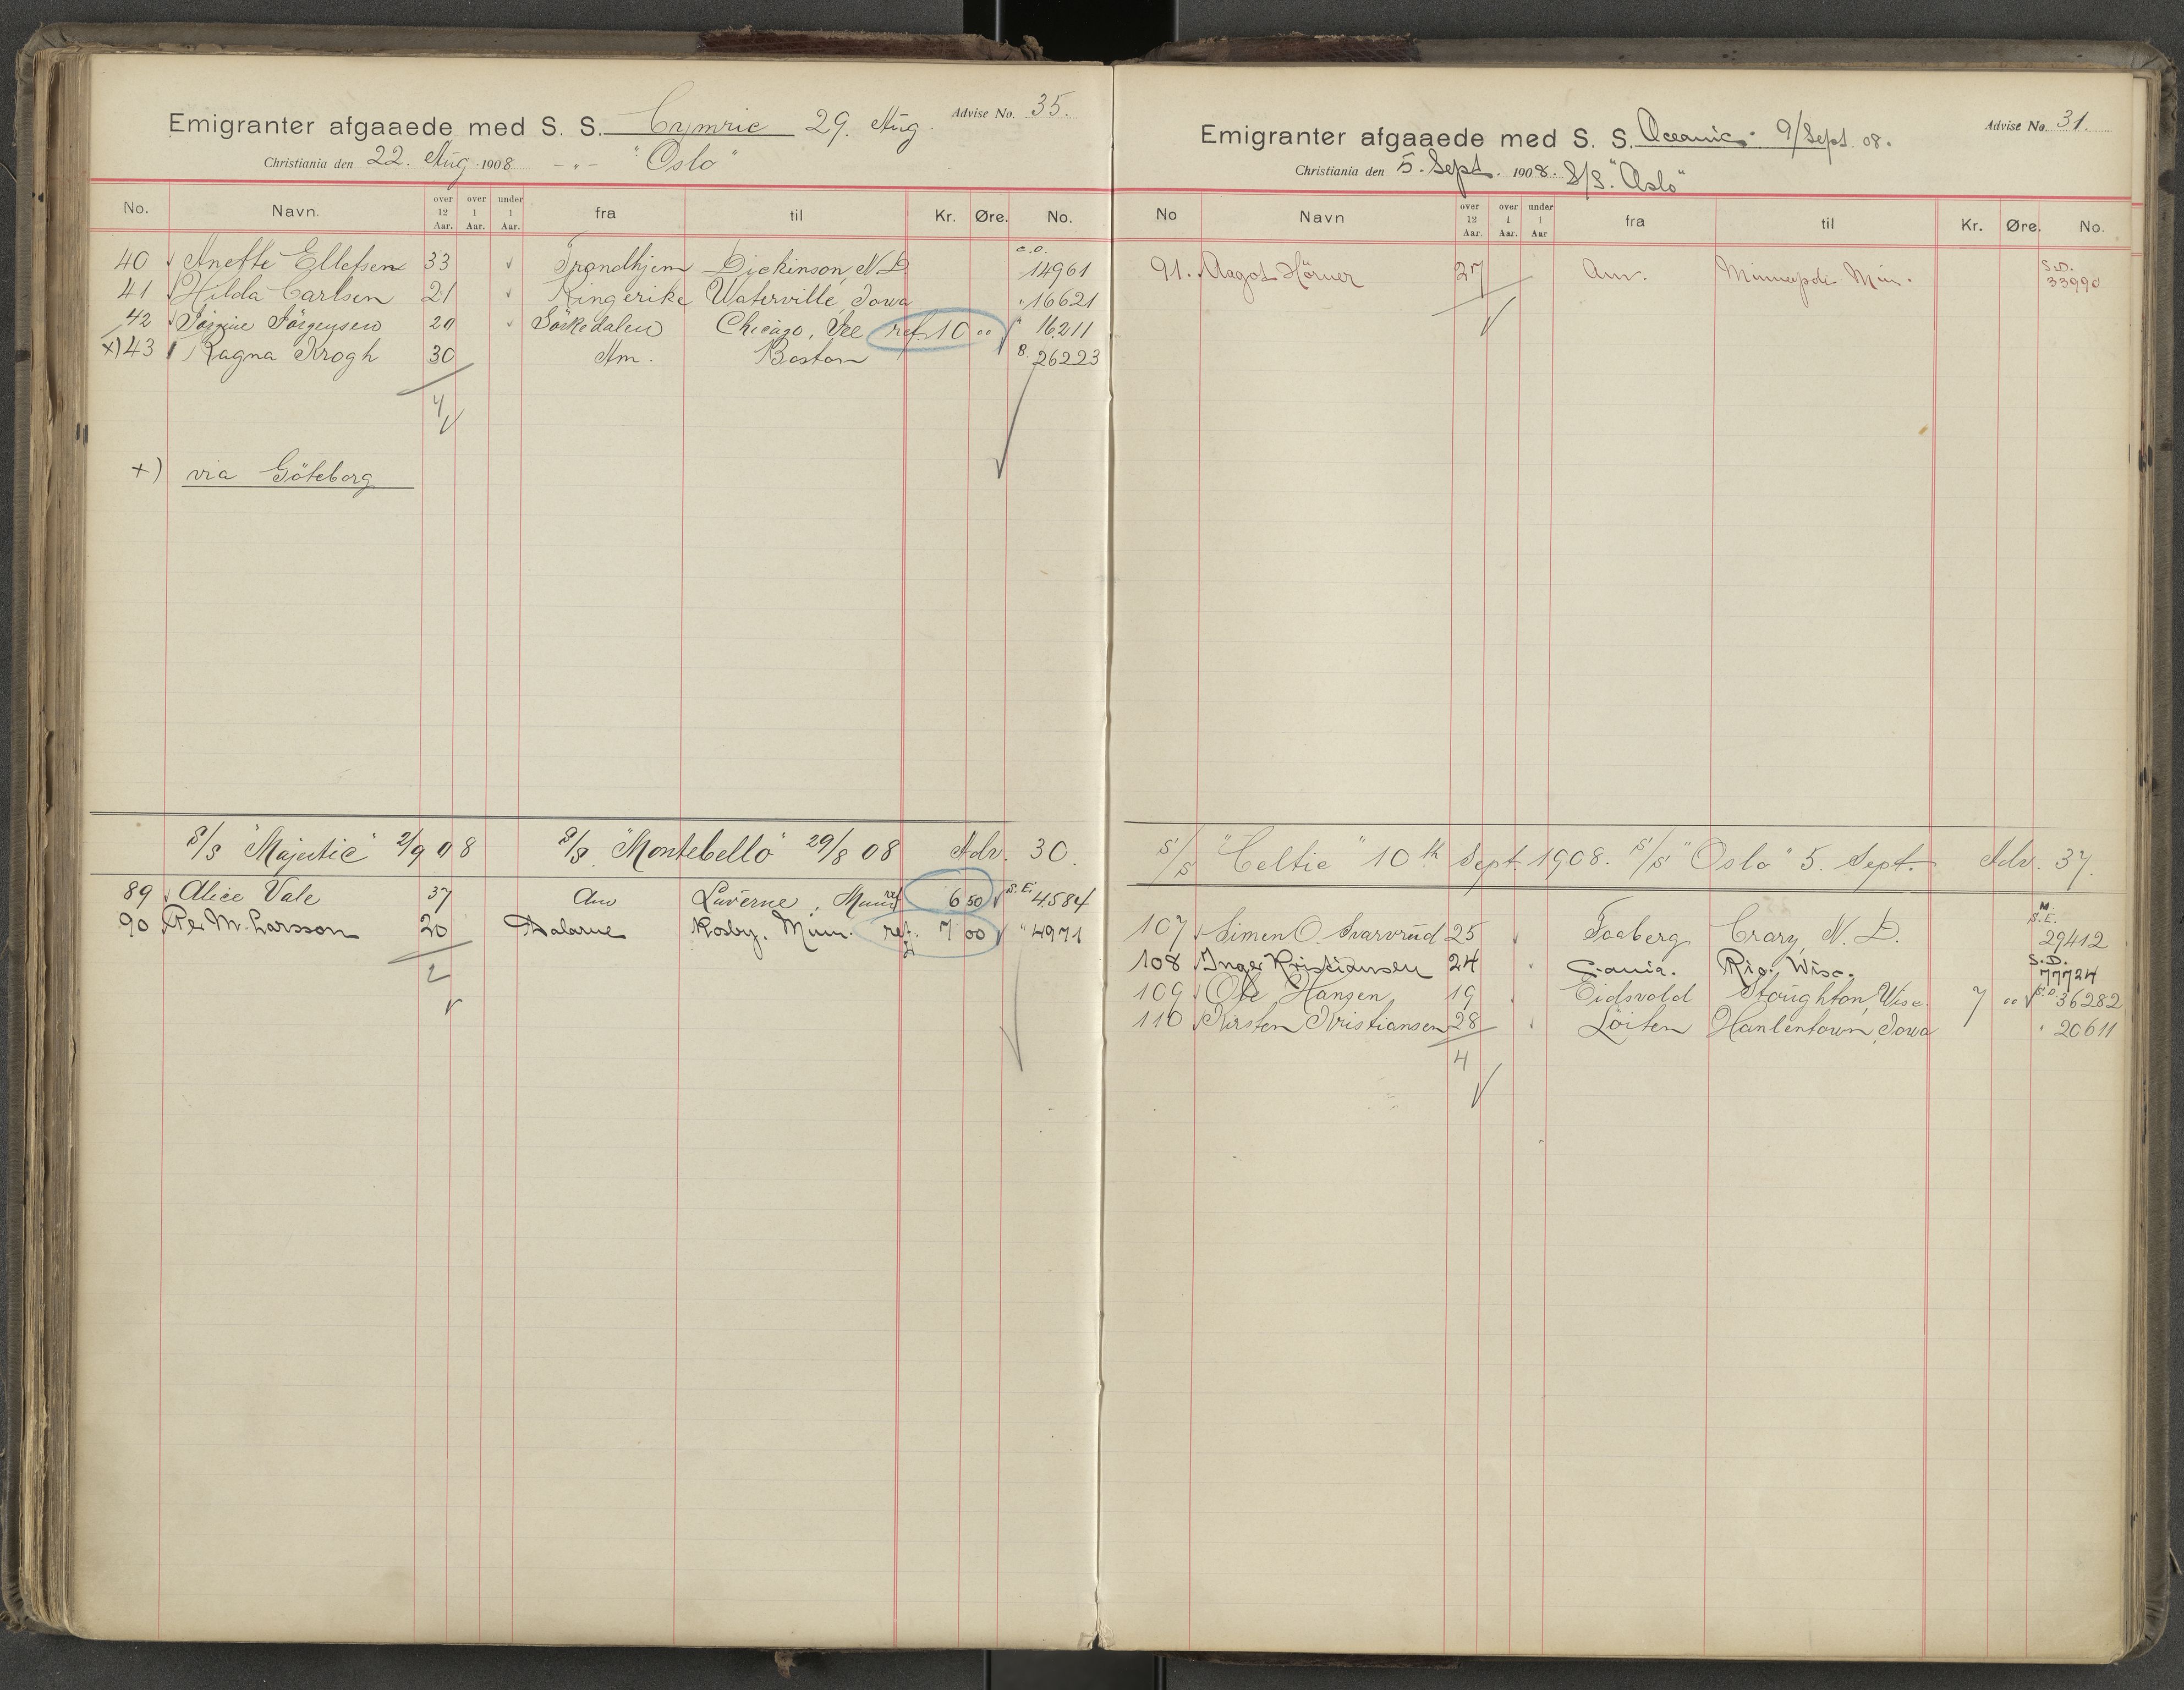 Emigranter afgaaede med S. S. Cymric 29. Aug. Advise No. 35.
Christiania den 22. Aug 1908 -"- "Oslo"
No. Navn. over 12 Aar. over 1 Aar. under 1 Aar. fra til Kr. Øre. No.
40 Anette Ellefsen 33 Trondhjem Dickinson, N. D. C.O. 14961
41 Hilda Carlsen 21 Ringerike Waterville, Iowa " 16621
42 Jörgine Jörgensen 20 Sörkedalen Chicago, Ill ref. 10 00 " 16211
x) 43 Ragna Krogh 30 Am. Boston B. 26223
4
x) via Göteborg
S/S "Majestic" 2/9 08 S/S "Montebello" 29/8 08 Adv. 30.
89 Alice Vale 37 Am Luverne, Minn ref 6 50 S.E. 4584
90 Per M. Larsson 20 Dalarne Rosby. Minn. ref. 7 00 " 4971
2
Emigranter afgaaede med S. S. Oceanic. 9/Sept. 08. Advise No. 31.
Christiania den 5. Sept. 1908. S/S. "Oslo"
No Navn over 12 Aar. over 1 Aar. under 1 Aar fra til Kr. Øre. No.
91. Aagot Hörner 27 Am. Minneapolis Min. S.D. 33990
1
S/S "Celtic" 10th Sept 1908. S/S "Oslo" 5. Sept. Adv. 37.
107 Simen O. Svarvrud 25 Faaberg Crary, N. D. M. S.E. 29412
108 Inger Kristiansen 24 C-ania. Rio, Wisc. S.D. 77724
109 Ole Hansen 19 Eidsvold Stoughton, Wisc. 7 00 S.D. 36282
110 Kirsten Kristiansen 28 Löiten Hanlontown, Iowa " 20611
4